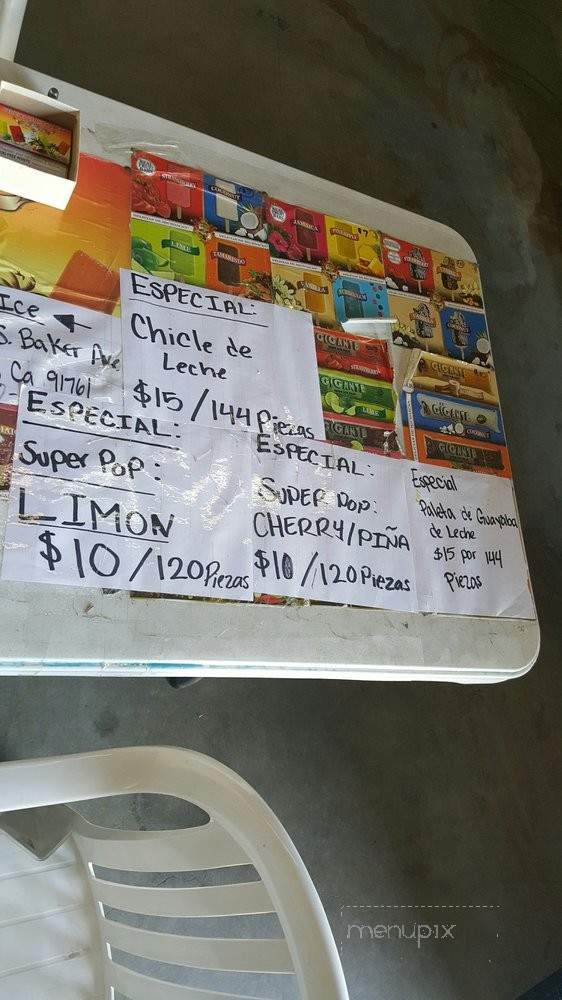 STRAWBERRY
COCONUT
JAMAICA
PINEAPPLE
LIME
TAMARINDO
VANILLA
ICE
S. Baker Ave
, Ca 91761
ESPECIAL:
Chicle de
Leche
$15 / 144 Piezas
GIGANTE
STRAWBERRY
GIGANTE
LIME
GIGANTE
GIGANTE
GIGANTE
COCONUT
GIGANTE
ESPECIAL:
Super Pop:
LIMON
$10 / 120 Piezas
ESPECIAL:
SUPER POP:
CHERRY/PIÑA
$10 / 120 Piezas
Especial
Paleta de Guayaba
de Leche
$15 por 144
Piezas
menupix